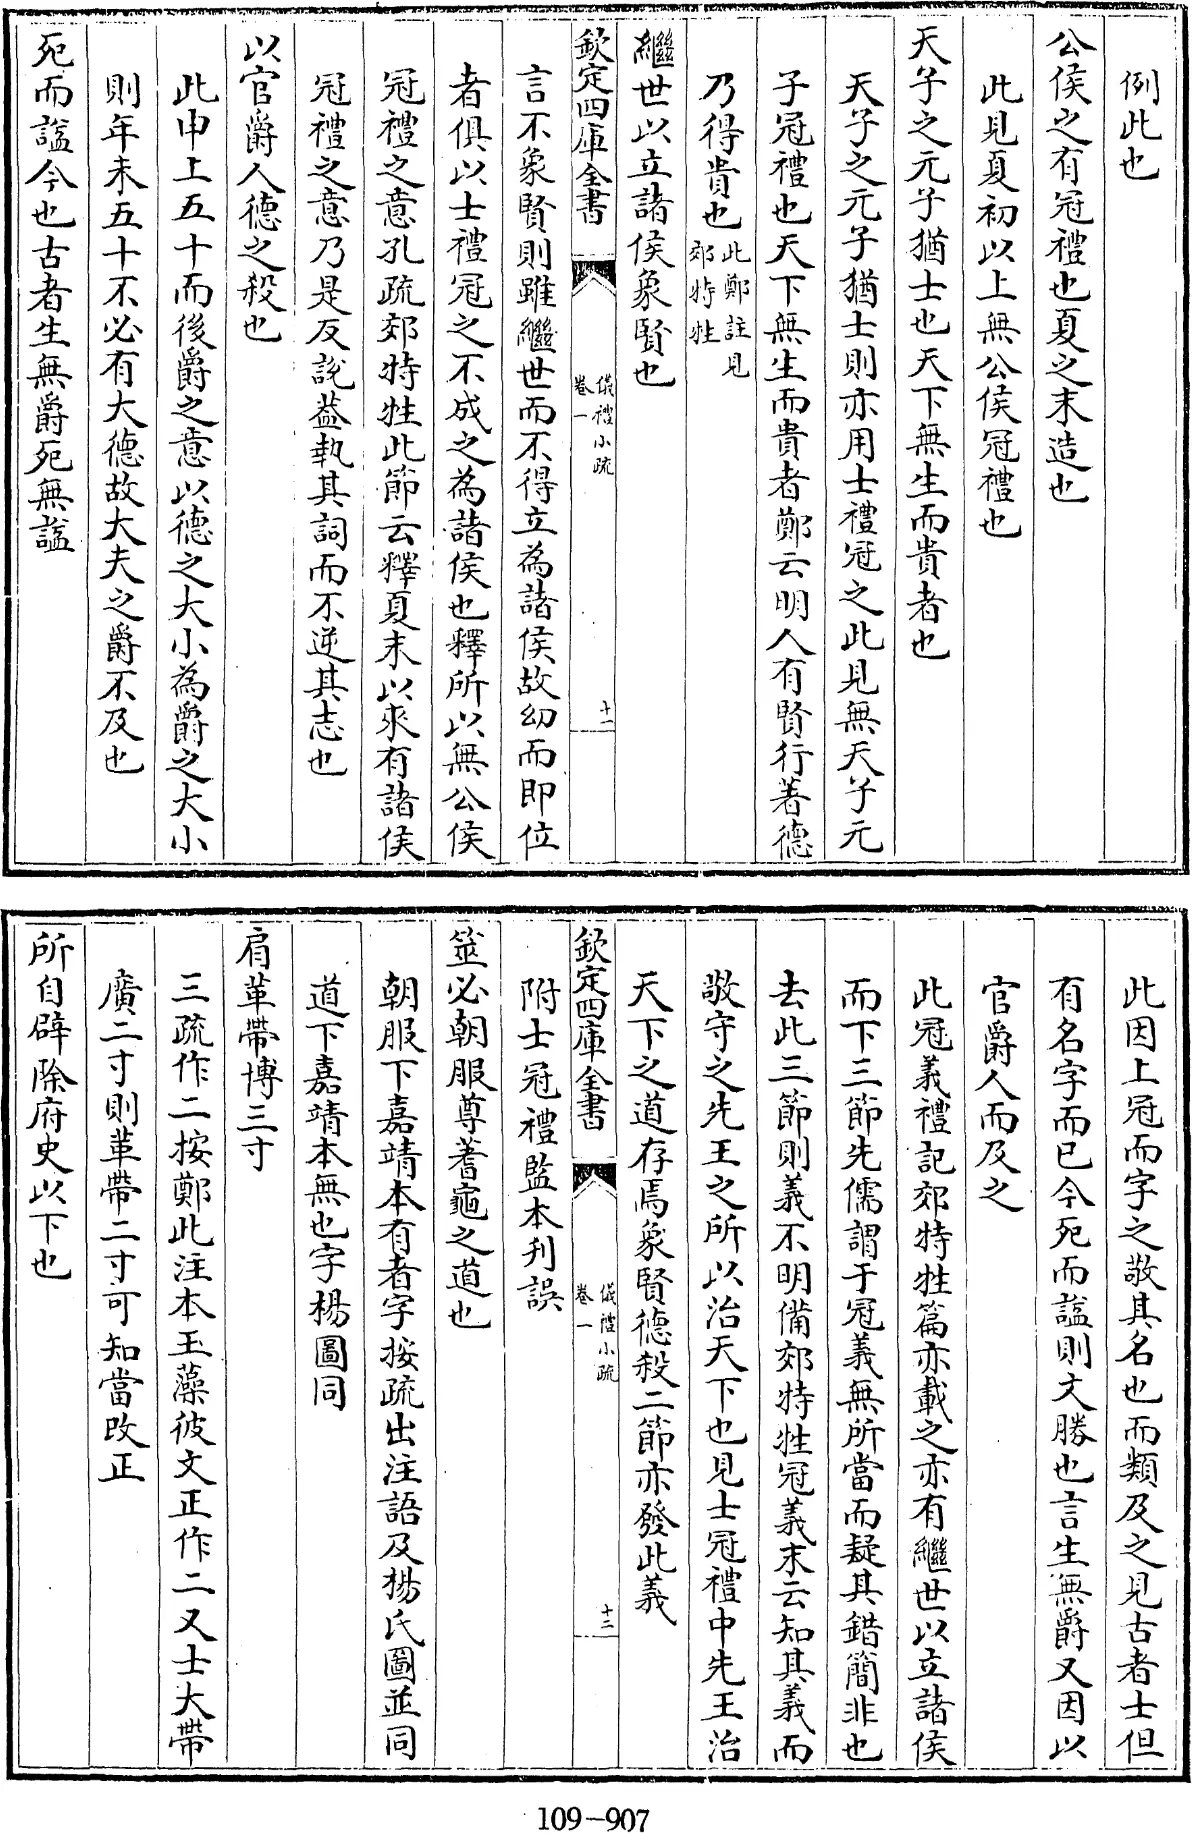 例此也
公侯之有冠禮也夏之末造也
此見夏初以上無公侯冠禮也
天子之元子猶士也天下無生而貴者也
天子之元子猶士則亦用士禮冠之此見無天子元
子冠禮也天下無生而貴者鄭云明人有賢行著德
乃得貴也此鄭註見郊特牲
繼世以立諸侯象賢也
欽定四庫全書
儀禮小疏
卷一
十一
言不象賢則雖繼世而不得立為諸侯故幼而即位
者俱以士禮冠之不成之為諸侯也釋所以無公侯
冠禮之意孔疏郊特牲此節云釋夏末以來有諸侯
冠禮之意乃是反說葢執其詞而不逆其志也
以官爵人德之殺也
此申上五十而後爵之意以德之大小為爵之大小
則年未五十不必有大德故大夫之爵不及也
死而諡今也古者生無爵死無諡
此因上冠而字之敬其名也而類及之見古者士但
有名字而已今死而諡則文勝也言生無爵又因以
官爵人而及之
此冠義禮記郊特牲篇亦載之亦有繼世以立諸侯
而下三節先儒謂于冠義無所當而疑其錯簡非也
去此三節則義不明備郊特牲冠義末云知其義而
敬守之先王之所以治天下也見士冠禮中先王治
天下之道存焉象賢德殺二節亦發此義
欽定四庫全書
儀禮小疏
卷一
十二
附士冠禮監本刋誤
筮必朝服尊蓍龜之道也
朝服下嘉靖本有者字按疏出注語及楊氏圖並同
道下嘉靖本無也字楊圖同
肩革帶博三寸
三疏作二按鄭此注本玉藻彼文正作二又士大帶
廣二寸則革帶二寸可知當改正
所自辟除府史以下也
109-907